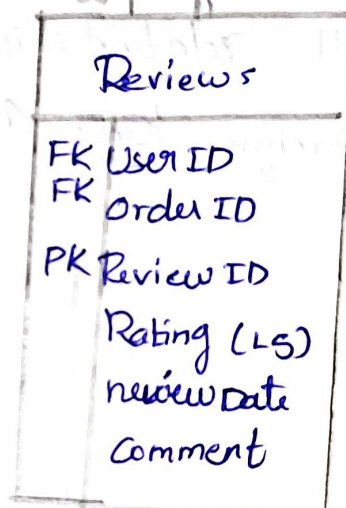 Reviews
FK User ID
FK Order ID
PK Review ID
Rating (1-5)
review Date
Comment